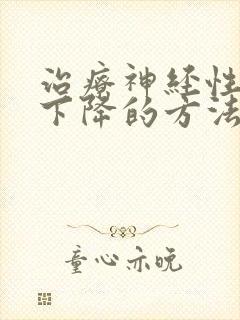 治疗神经性
下降的方法
童心亦晚